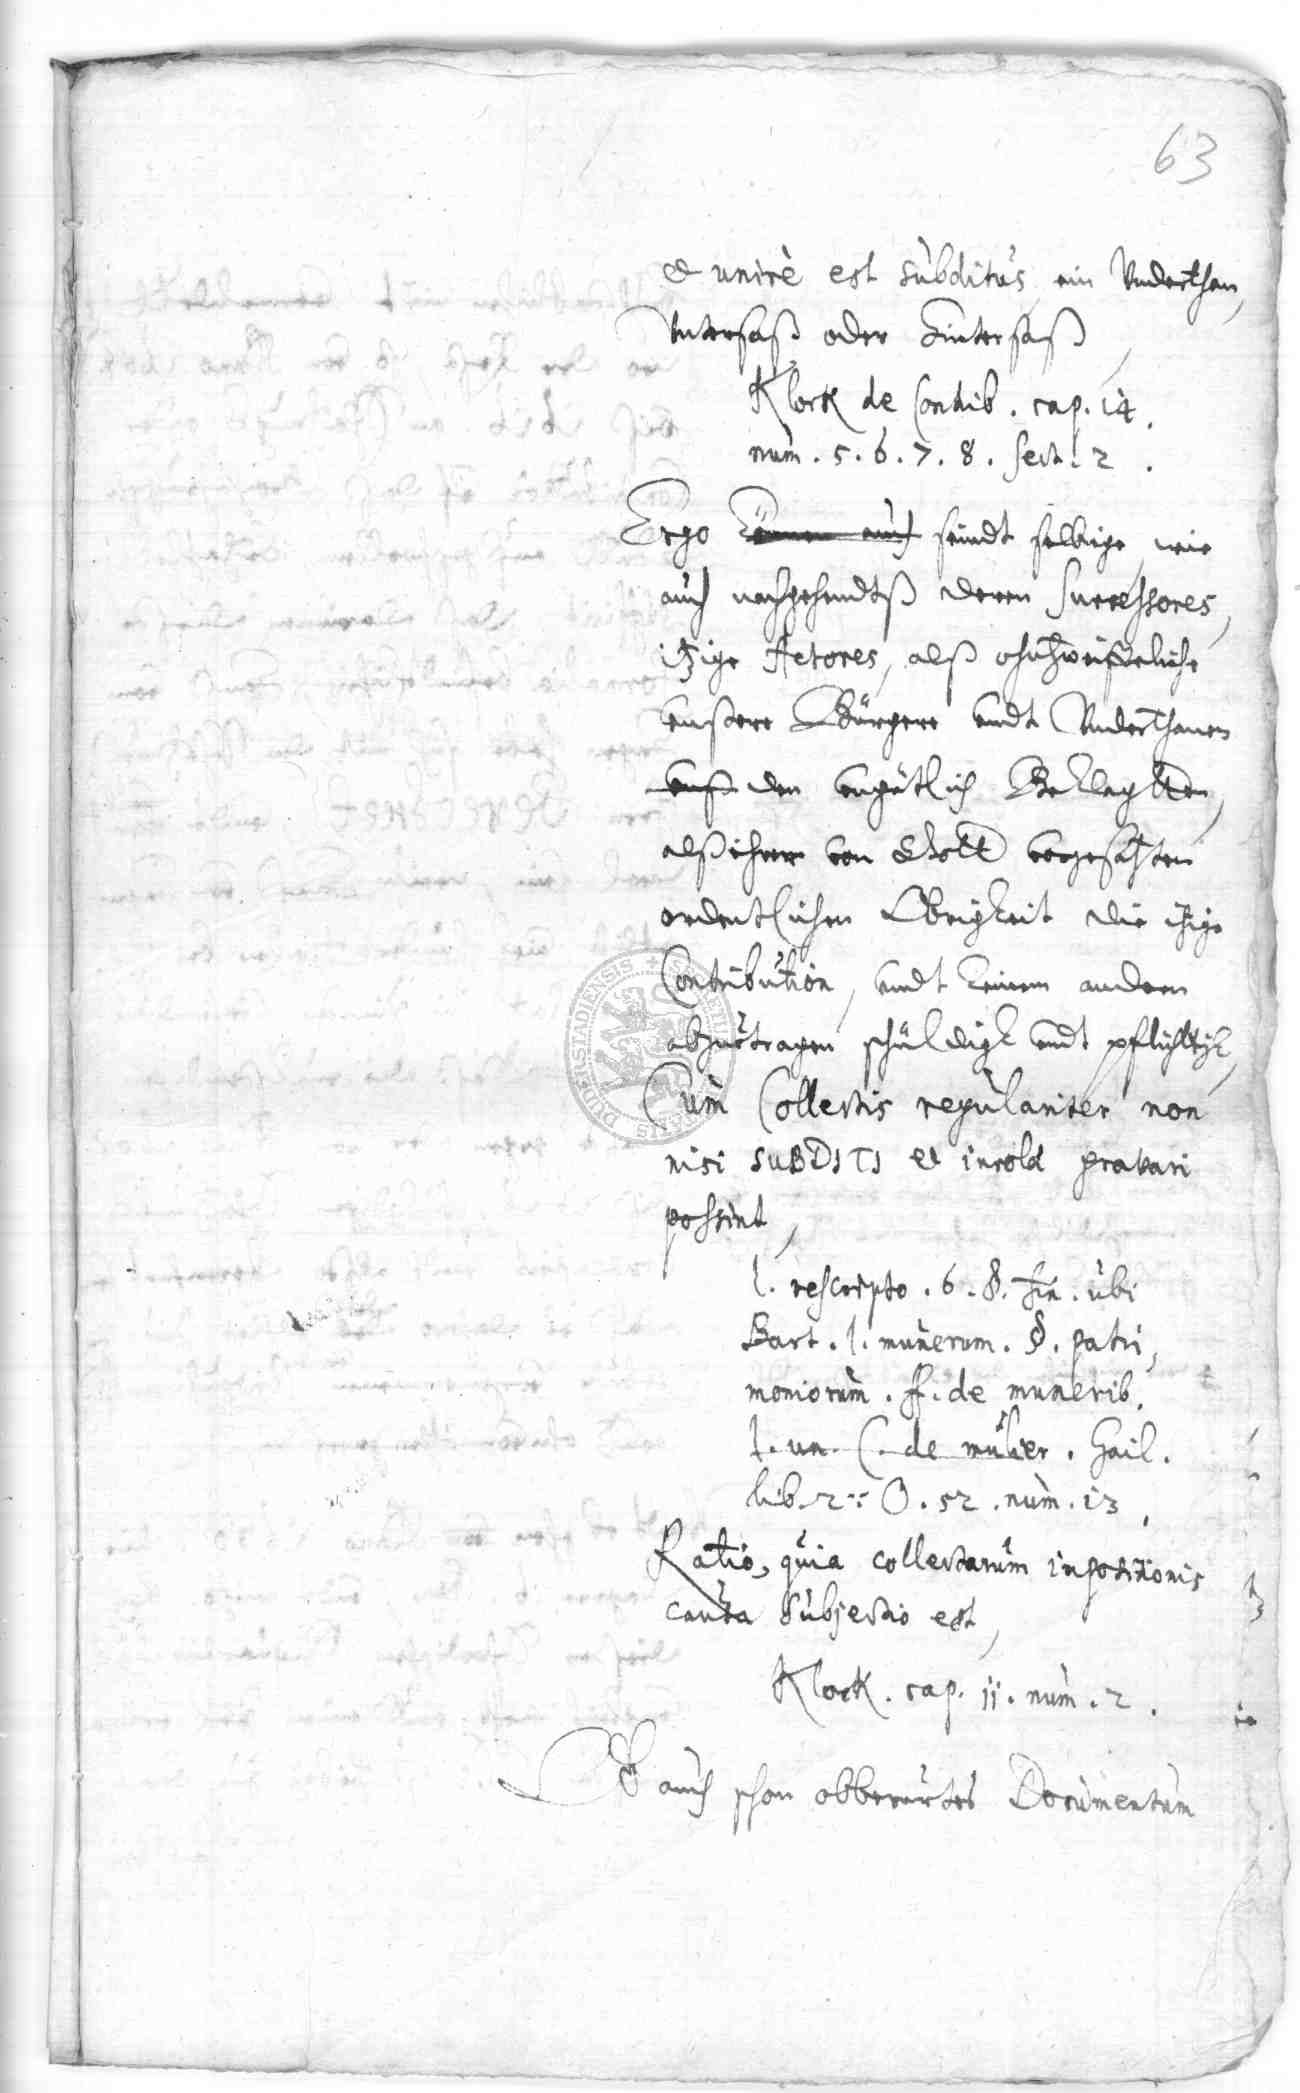 63
et unicè est subditus, ein Underthan,
Untersaß oder Hintersaß,
Klock de Contrib. cap. 14.
num. 5. 6. 7. 8. sect. 2.
Ergo können auch seindt selbige, wie
auch nachgehendtß deren Successores,
itzige Actores, alß ohnzweiffeliche
unsere Bürgere undt Underthanen
den Beklagten,
alß ihrer von Gott vorgesatzten
ordentlichen Obrigkeit die itzige
Contribution, undt keinem andern
abzutragen schuldigk undt pflichtigk,
Cum Collectis regulariter non
nisi SUBDITI et incolæ gravari
possint,
l. rescripto. 6. §. fin. ubi
Bart. l. munerum. §. patri,
moniorum. ff. de munerib.
l. un. C. de mulier. Gail.
lib. 2. O. 52. num. 13,
Ratio, quia collectarum inpositionis
causa subjectio est,
Klock. cap. 11. num. 2.
Ob auch schon obberürtes Documentum